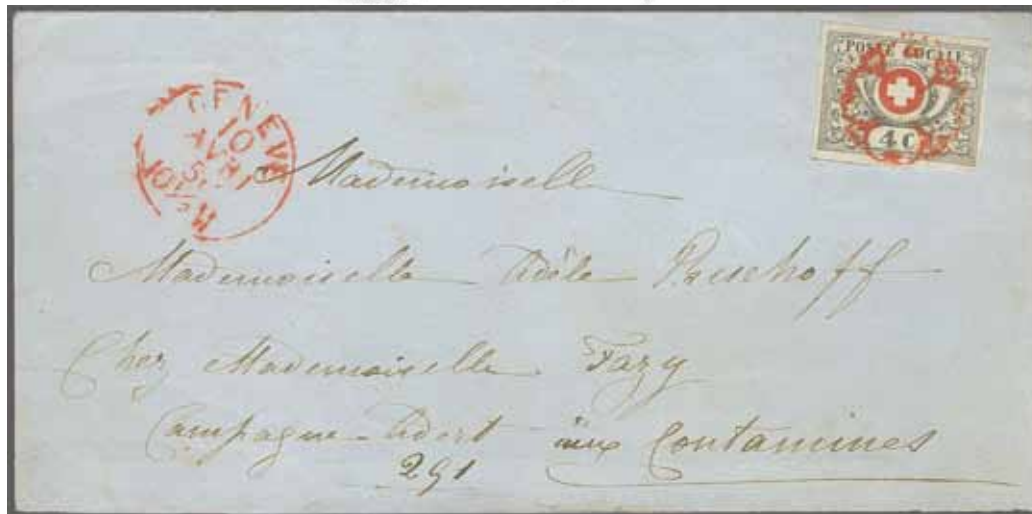 POSTE LOCALE
4 C
GENEVE
10
AVRI
51
Mademoiselle
Mademoiselle Adèle
Chez Mademoiselle Fazy
Campagne aux Contamines
291